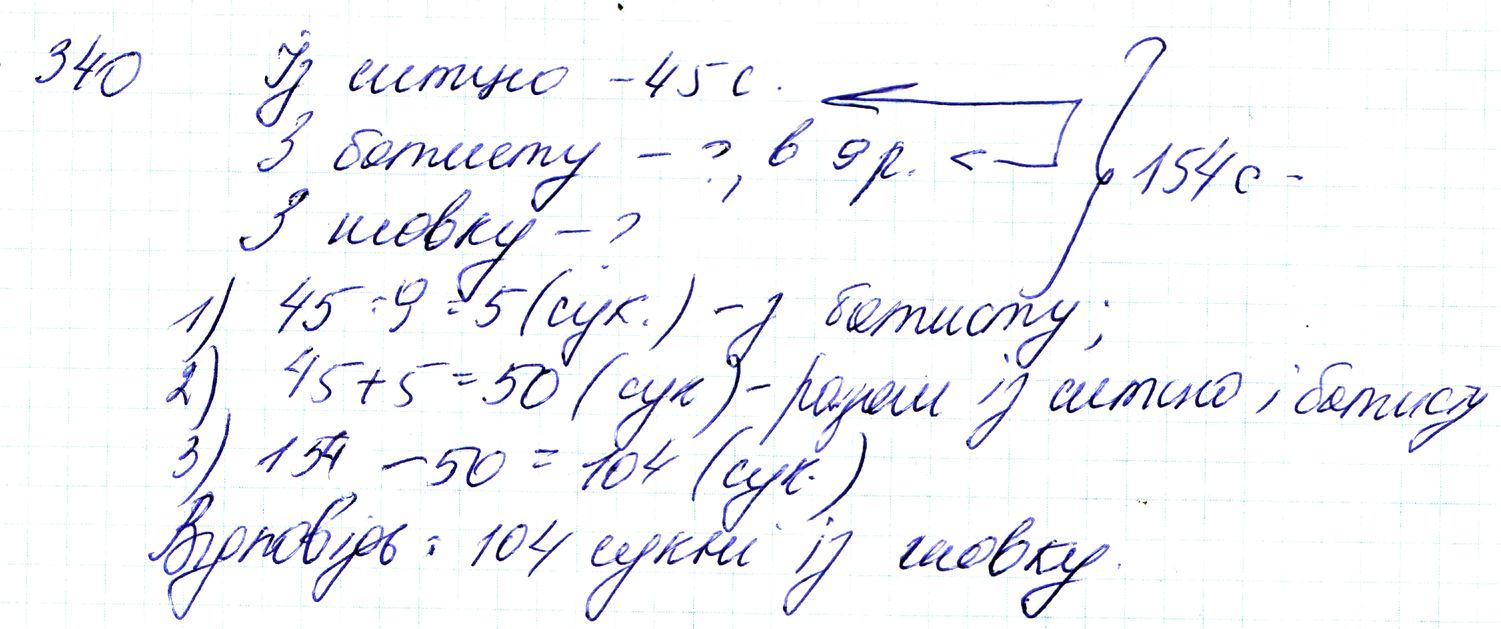 340 Із ситцю - 45 с.
З батисту - ?, в 9 р. 154 с.
З шовку - ?
1) 45 : 9 = 5 (сук.) - з батисту;
2) 45 + 5 = 50 (сук) - разом із ситцю і батисту
3) 154 - 50 = 104 (сук.)
Відповідь: 104 сукні із шовку.